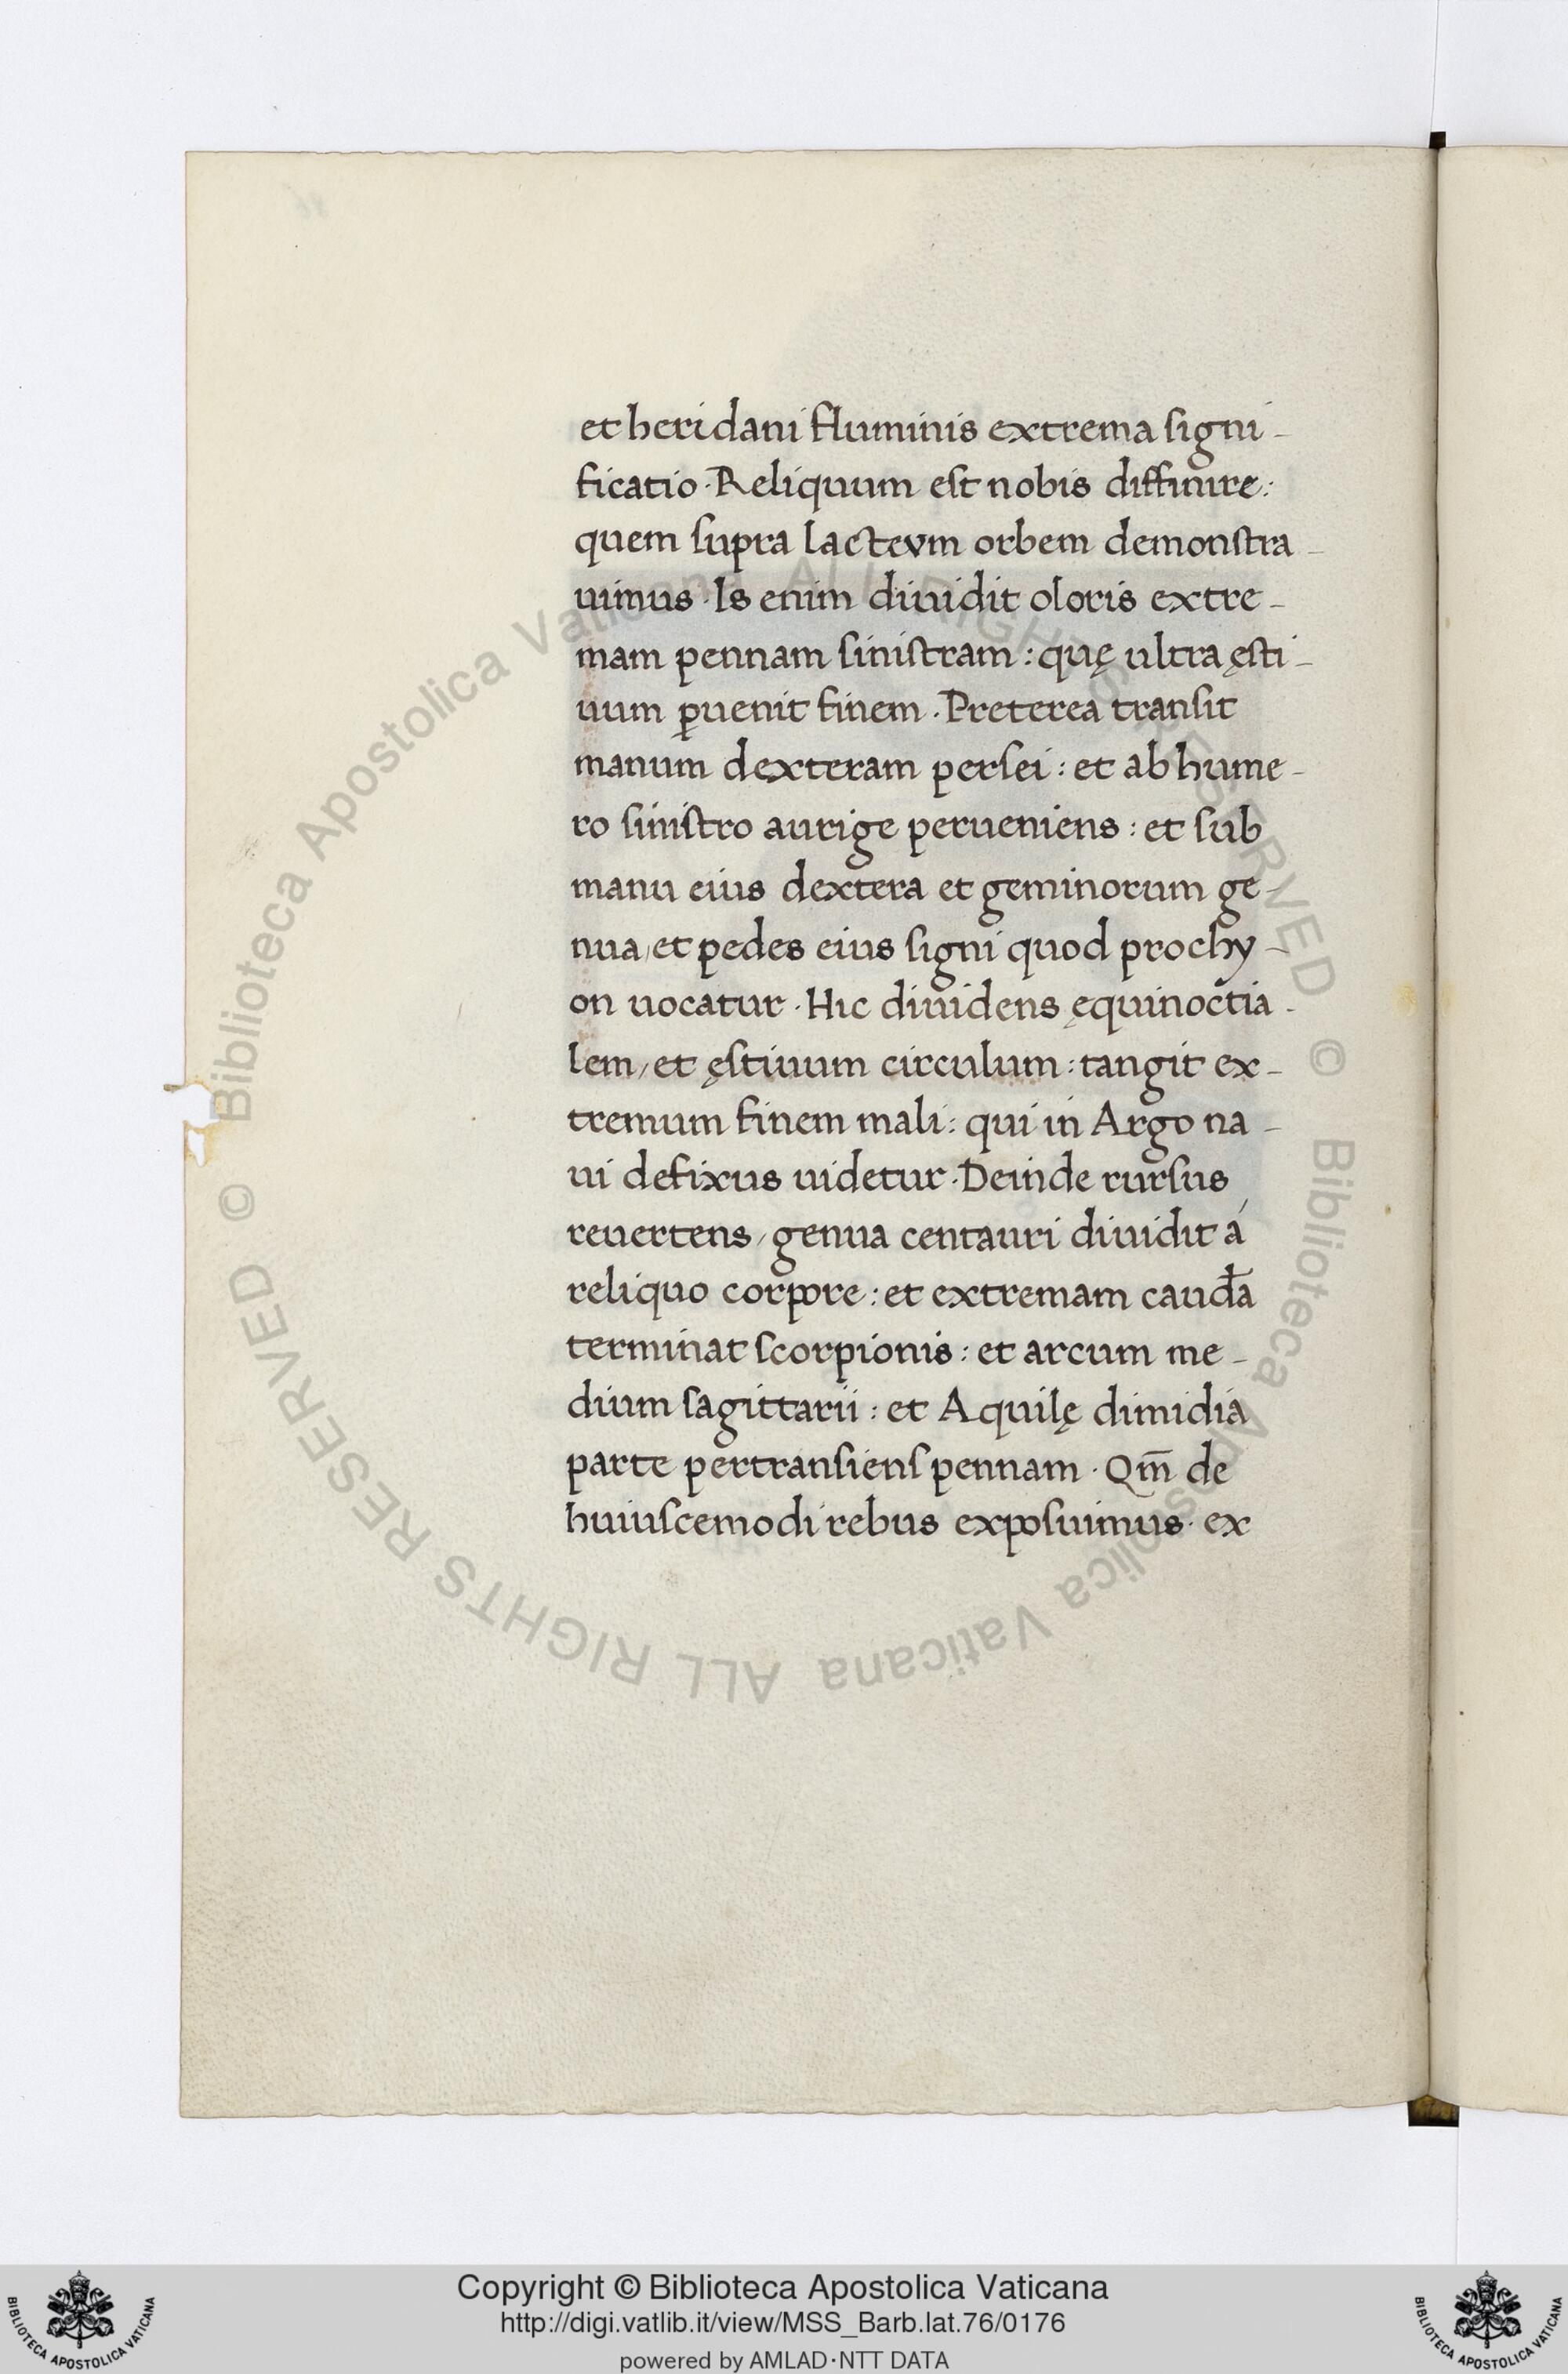 et heridani fluminis extrema signi-
ficatio. Reliquum est nobis diffinire:
quem supra lactevm orbem demonstra-
uimus. Is enim diuidit oloris extre-
mam pennam sinistram: quę ultra ęsti-
uum ꝑuenit finem. Preterea transit
manum dexteram persei: et ab hume-
ro sinistro aurige perueniens: et sub
manu eius dextera et geminorum ge-
nua, et pedes eius signi quod prochy-
on uocatur. Hic diuidens ęquinoctia-
lem, et ęstiuum circulum: tangit ex-
tremum finem mali: qui in Argo na-
ui defixus uidetur. Deinde rursus
reuertens, genua centauri diuidit á
reliquo corpore: et extremam caudā
terminat scorpionis: et arcum me-
dium sagittarii: et Aquilę dimidia
parte pertransiens pennam. Qm̄ de
huiuscemodi rebus exposuimus. ex
© Biblioteca Apostolica Vaticana ALL RIGHTS RESERVED
© Biblioteca Apostolica Vaticana ALL RIGHTS RESERVED
Copyright © Biblioteca Apostolica Vaticana
http://digi.vatlib.it/view/MSS_Barb.lat.76/0176
powered by AMLAD·NTT DATA
BIBLIOTECA APOSTOLICA VATICANA
BIBLIOTECA APOSTOLICA VATICANA